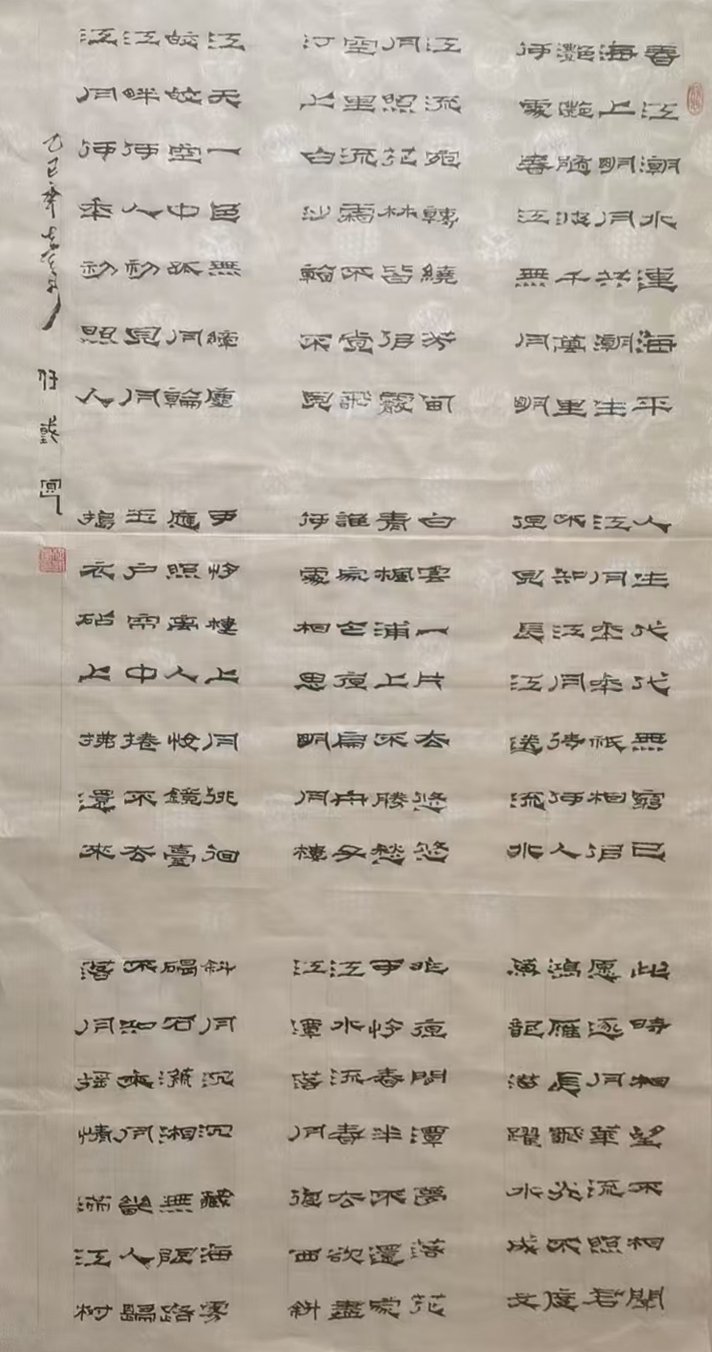 春江潮水連海平
海上明月共潮生
灩灩隨波千萬里
何處春江無月明
江流宛轉繞芳甸
月照花林皆似霰
空里流霜不覺飛
汀上白沙輪不見
江天一色無纖塵
皎皎空中孤月輪
江畔何人初見月
江月何年初照人
人生代代無窮已
江月年年祇相似
不知江月待何人
但見長江送流水
白雲一片去悠悠
青楓浦上不勝愁
誰家今夜扁舟子
何處相思明月樓
可憐樓上月徘徊
應照離人妝鏡臺
玉戶簾中捲不去
搗衣砧上拂還來
此時相望不相聞
愿逐月華流照君
鴻雁長飛光不度
魚龍潛躍水成文
昨夜閒潭夢落花
可憐春半不還家
江水流春去欲盡
江潭落月復西斜
斜月沉沉藏海霧
碣石瀟湘無限路
不知乘月能人歸
落月搖情滿江村
乙巳年 寫